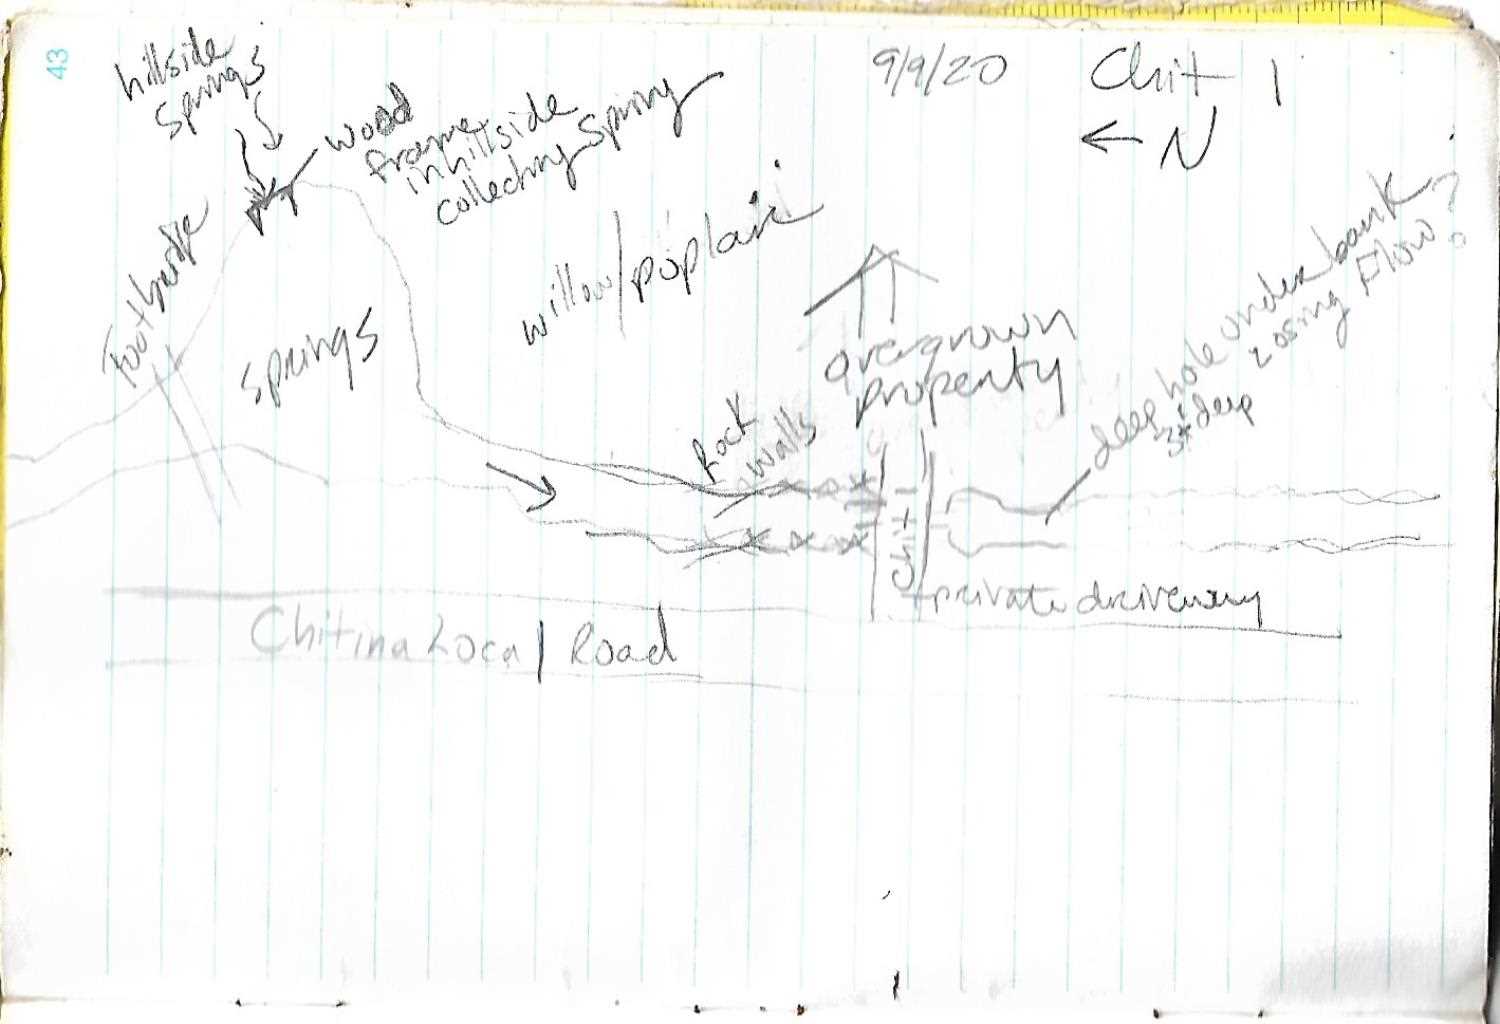 43
9/9/20
Chit 1
← N
hillside
springs
wood
frame
in hillside
collecting spring
Footbridge
springs
willow/poplar
overgrown
property
Rock
walls
deep hole under bank
3' deep
Losing Flow?
Chit 1
private driveway
Chitina Local Road